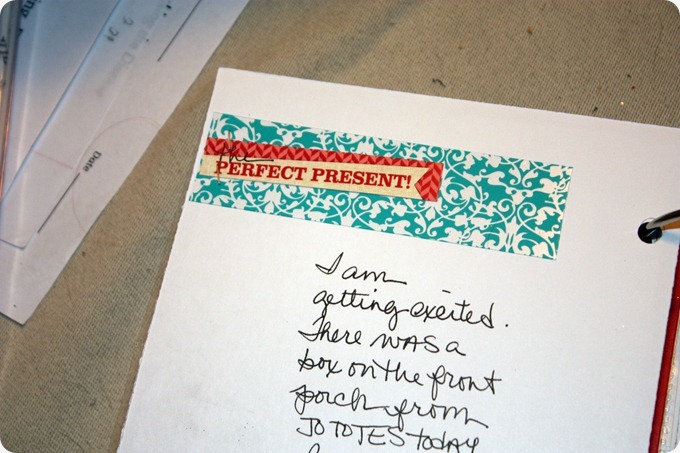 the
PERFECT PRESENT!
I am
getting excited.
There was a
box on the front
porch from
JO TOTES TODAY
Date